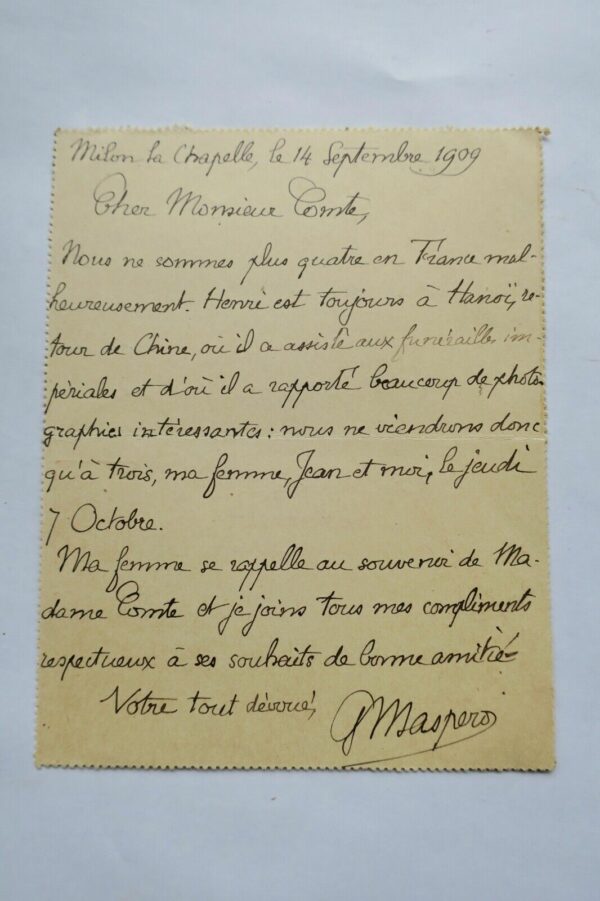 Milon la Chapelle, le 14 Septembre 1909
Cher Monsieur Comte,
Nous ne sommes plus quatre en France mal-
heureusement. Henri est toujours à Hanoï, re-
tour de Chine, où il a assisté aux funérailles im-
périales et d'où il a rapporté beaucoup de photo
graphies intéressantes: nous ne viendrons donc
qu'à trois, ma femme, Jean et moi, le jeudi
7 Octobre.
Ma femme se rappelle au souvenir de Ma-
dame Comte et je joins tous mes compliments
respectueux à ses souhaits de bonne amitié
Votre tout dévoué,
G Maspero